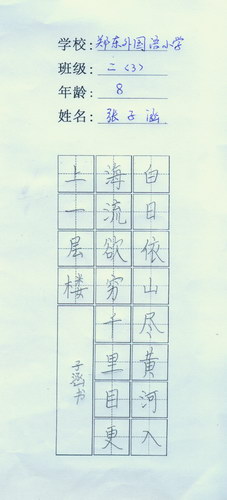 学校:郑东外国语小学
班级:二(3)
年龄:8
姓名:张子涵
白日依山尽黄河入
海流欲穷千里目更
上一层楼
子涵书